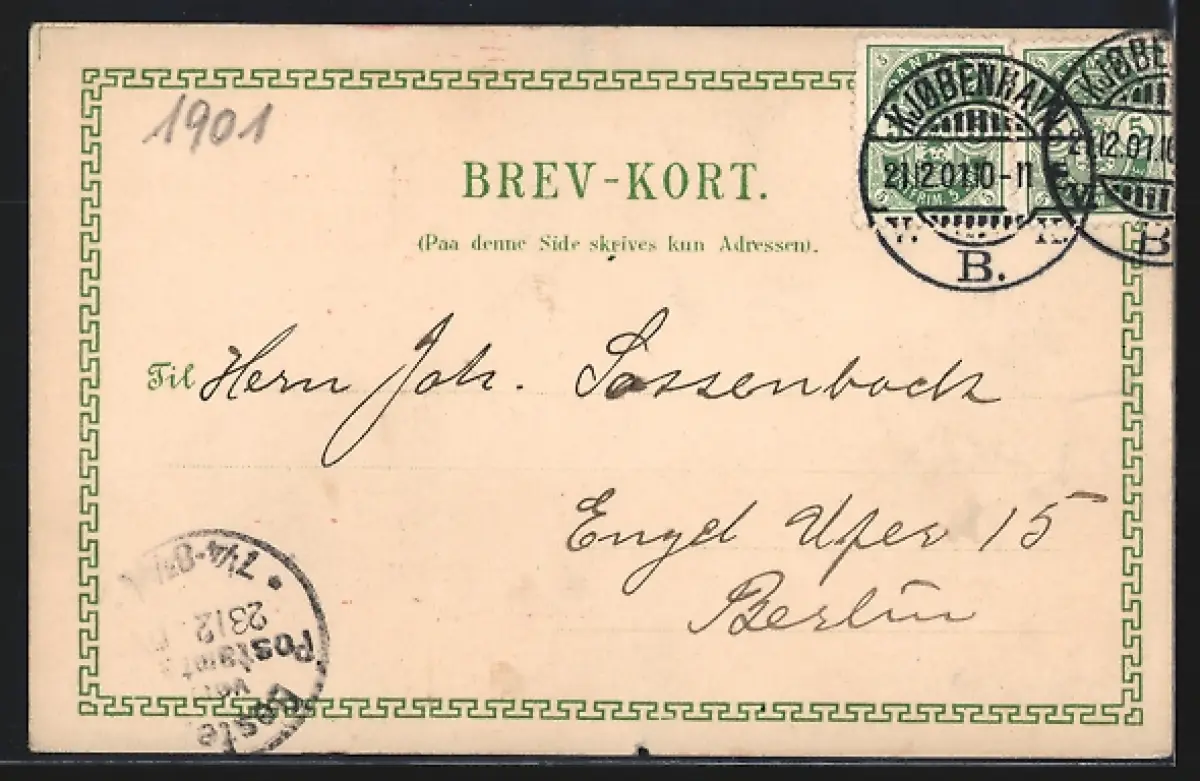 1901
DANMARK
KJØBENHAVN
21.12.01.10-11
B.
KJØBEN
21.12.01.10
B
BREV-KORT.
(Paa denne Side skrives kun Adressen).
Til Herrn Joh. Sassenbach
Engel Ufer 15
Berlin
7¼-8½
2312
Postamt